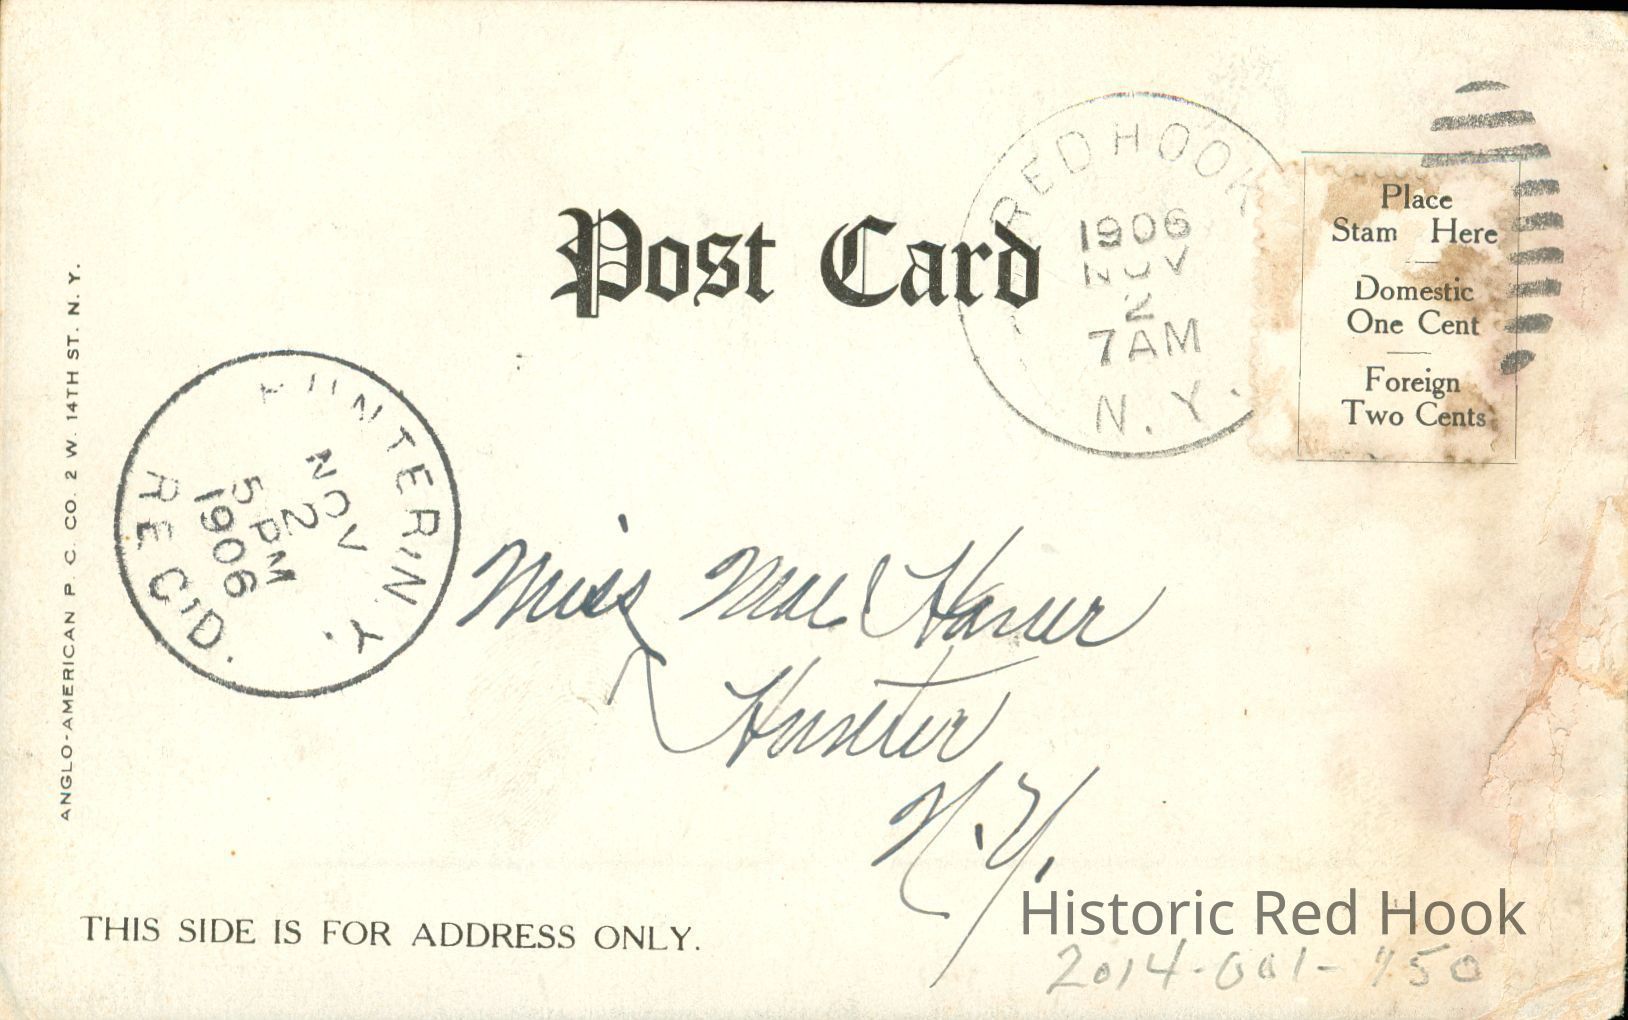 Post Card
RED HOOK
1906
NOV
2
7 AM
N. Y.
Place
Stam Here
Domestic
One Cent
Foreign
Two Cents
ANGLO-AMERICAN P. C. CO. 2 W. 14TH ST. N. Y.
HUNTER, N.Y.
NOV
2
5 PM
1906
REC'D.
Miss Mae
Hunter
N.Y.
THIS SIDE IS FOR ADDRESS ONLY.
Historic Red Hook
2014-001-